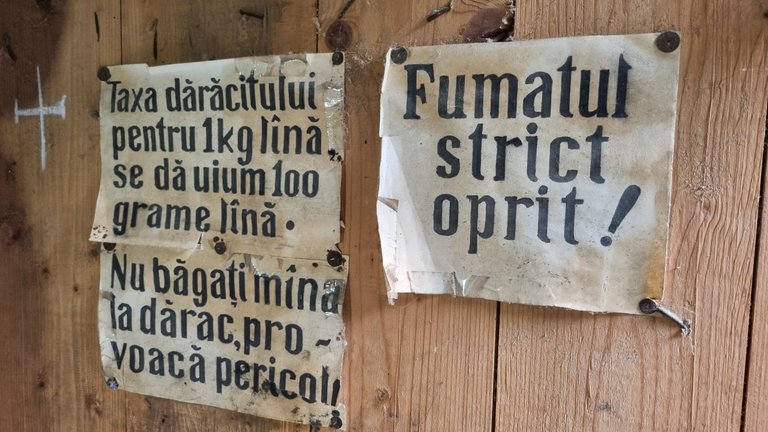 Taxa dărăcitului
pentru 1kg lînă
se dă uium 100
grame lînă.
Nu băgați mîna
la dărac, pro-
voacă pericol!
Fumatul
strict
oprit!